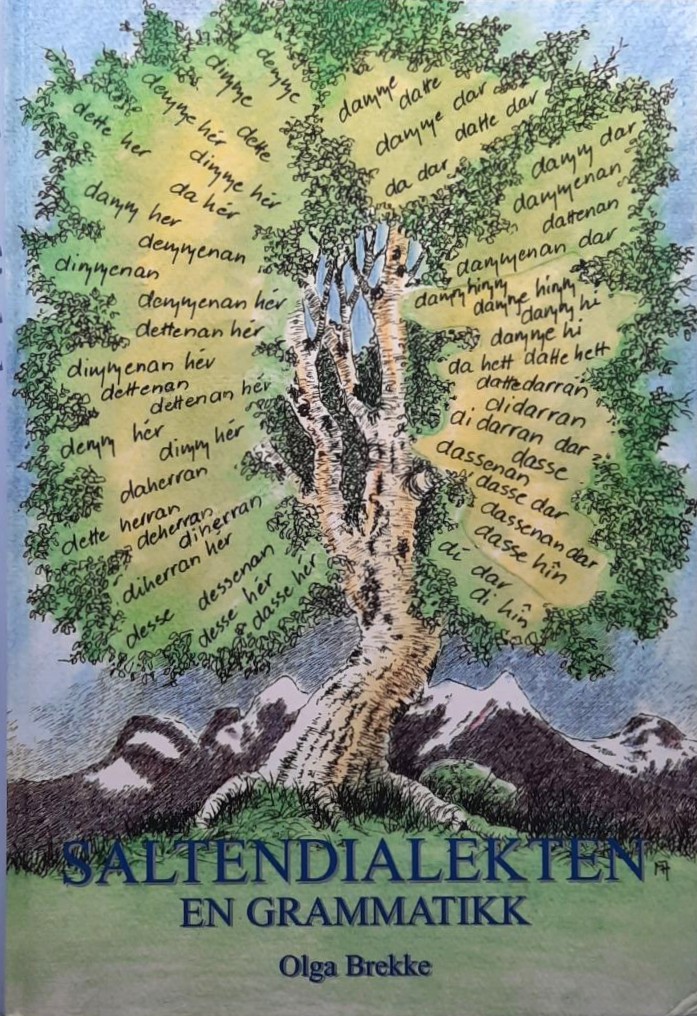 demme
dimme
demme hér
dette
dette her
dimme hér
da hér
damm her
demmenan
dimmenan
demmenan hér
dettenan hér
dimmenan hér
dettenan
dettenan hér
demm hér
dimm hér
daherran
dette herran
deherran
diherran
diherran hér
dessenan
desse
desse hér
dasse hér
damme
datte
damme dar
datte dar
da dar
damm dar
dammenan
dattenan
dammenan dar
damm hinn
damme hinn
damm hi
damme hi
da hett datte hett
dattedarran
didarran
di darran dar
dasse
dassenan
dasse dar
dassenan dar
dasse hîn
di dar
di hîn
SALTENDIALEKTEN
EN GRAMMATIKK
Olga Brekke